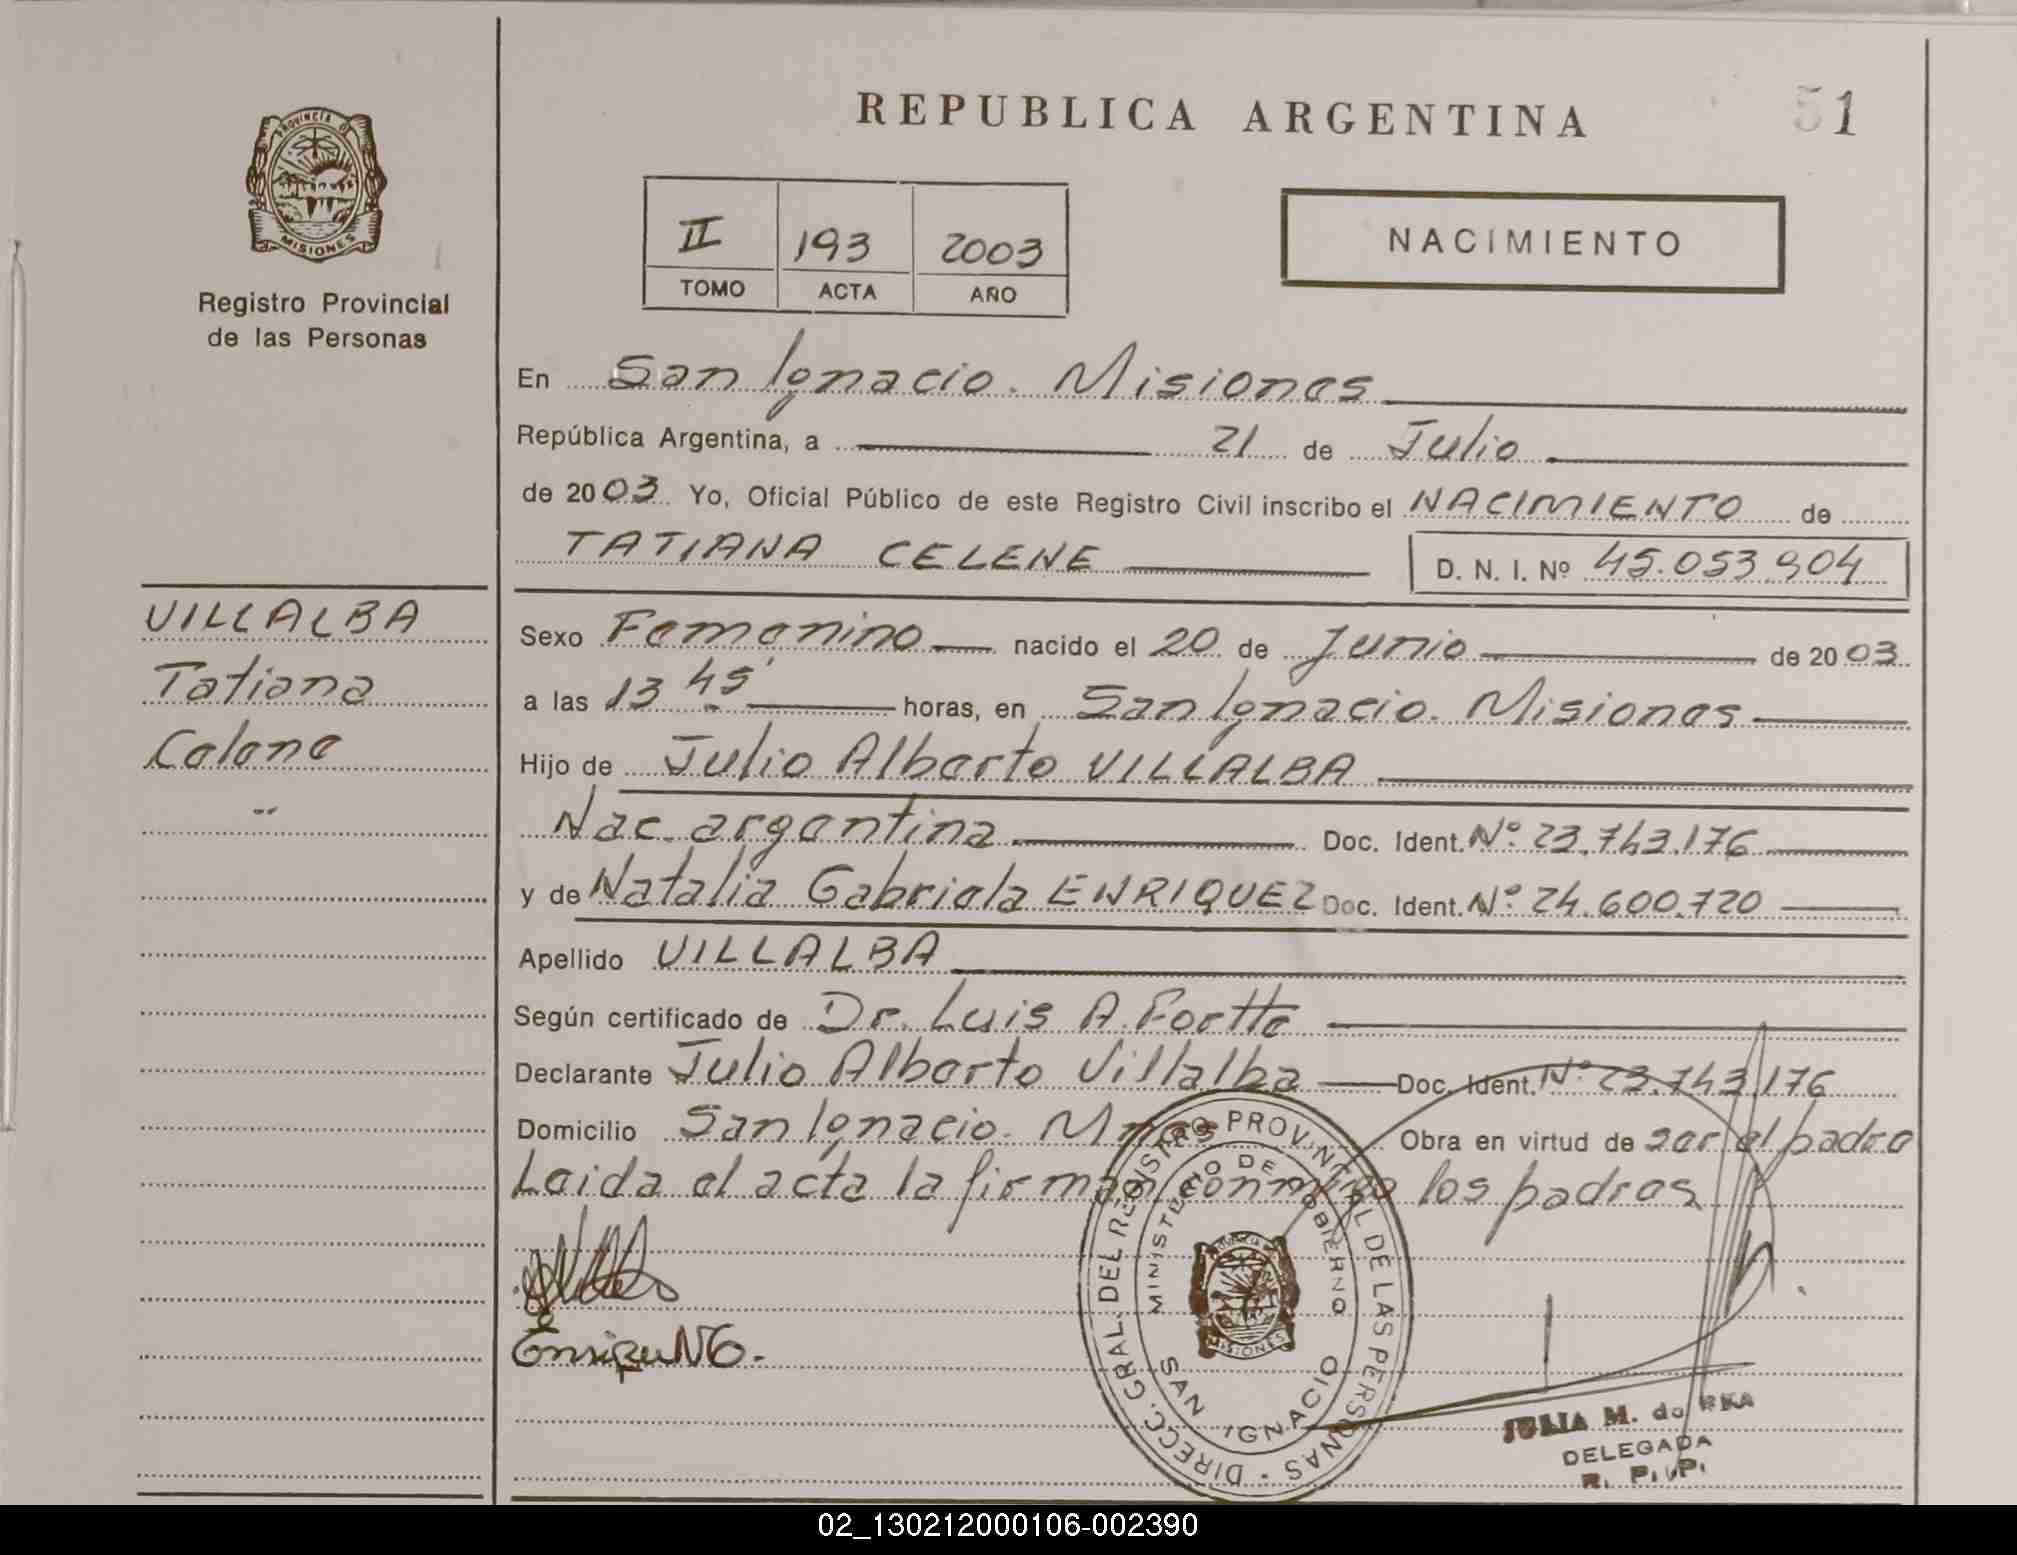 REPUBLICA ARGENTINA
51
PROVINCIA D
MISIONES
Registro Provincial
de las Personas
II 193 2003
TOMO ACTA AÑO
NACIMIENTO
En San Ignacio. Misiones
República Argentina, a 21 de Julio
de 2003 Yo, Oficial Público de este Registro Civil inscribo el NACIMIENTO de
TATIANA CELENE
D. N. I. Nº 45.053.904
VILLALBA
Tatiana
Celene
Sexo Femenino nacido el 20 de Junio de 2003
a las 13 45' horas, en San Ignacio. Misiones
Hijo de Julio Alberto VILLALBA
Nac. argentina Doc. Ident. Nº 23.743.176
y de Natalia Gabriela ENRIQUEZ Doc. Ident. Nº 24.600.720
Apellido VILLALBA
Según certificado de Dr. Luis A.
Declarante Julio Alberto Villalba Doc. Ident. Nº 23.743.176
Domicilio San Ignacio. Mnes Obra en virtud de ser el padre
Leida el acta la firman conmigo los padres
DIRECC. GRAL. DEL REGISTRO PROVINCIAL DE LAS PERSONAS
MINISTERIO DE GOBIERNO
MISIONES
SAN IGNACIO
JULIA M. de
DELEGADA
R. P. P.
02_130212000106-002390